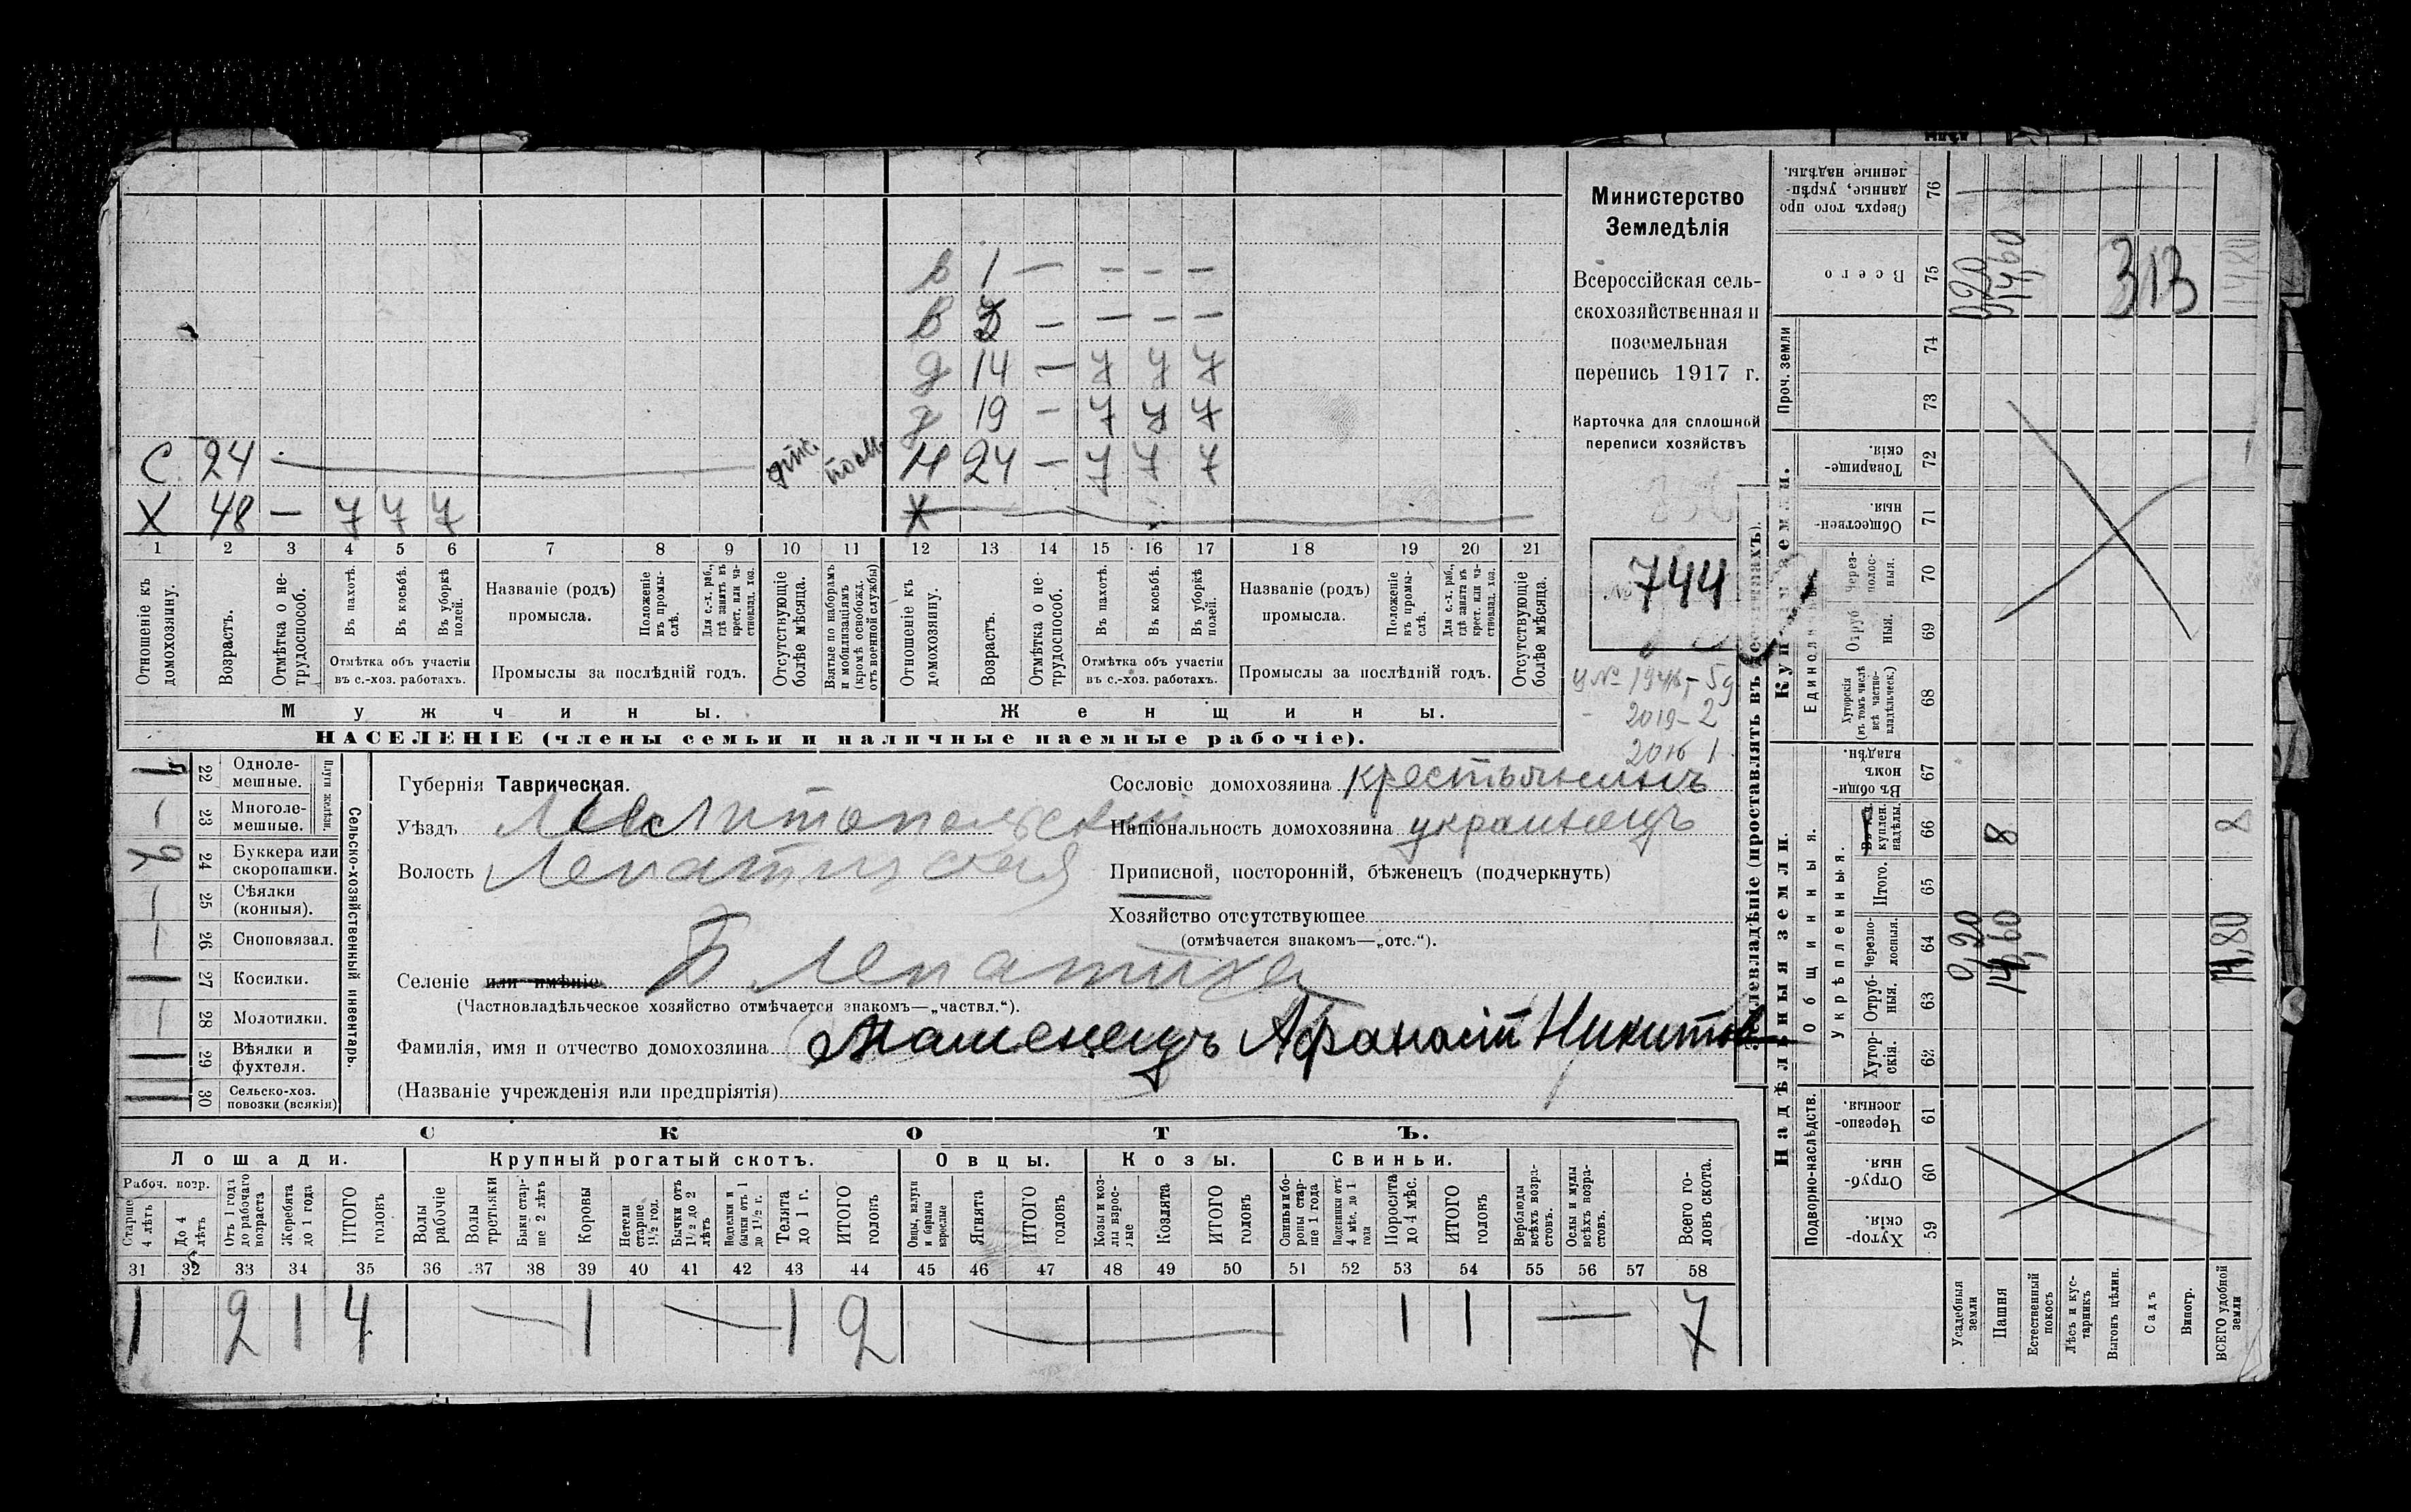 в 1 — — — —
в 3 — — — —
д 14 — 7 7 7
д 19 — 7 7 7
С. 24 — Н 24 — 7 7 7
Х 48 — 7 7 7 Х —
1 2 3 4 5 6 7 8 9 10 11 12 13 14 15 16 17 18 19 20 21
Отношеніе къ домохозяину.
Возрастъ.
Отмѣтка о не-трудоспособ.
Въ пахотѣ.
Въ косьбѣ.
Въ уборкѣ полей.
Отмѣтка объ участіи въ с.-хоз. работахъ.
Названіе (родъ) промысла.
Положеніе въ промы-слѣ.
Для с.-х. раб., гдѣ занятъ въ крест. или ча-стновлад. хоз.
Промыслы за послѣдній годъ.
Отсутствующіе болѣе мѣсяца.
Взятые по наборамъ и мобилизаціямъ (кромѣ освобожд. отъ военной службы)
Отношеніе къ домохозяину.
Возрастъ.
Отмѣтка о не-трудоспособ.
Въ пахотѣ.
Въ косьбѣ.
Въ уборкѣ полей.
Отмѣтка объ участіи въ с.-хоз. работахъ.
Названіе (родъ) промысла.
Положеніе въ промы-слѣ.
Для с.-х. раб., гдѣ занята въ крест. или ча-стновлад. хоз.
Промыслы за послѣдній годъ.
Отсутствующіе болѣе мѣсяца.
Мужчины. Женщины.
НАСЕЛЕНІЕ (члены семьи и наличные наемные рабочіе).
Министерство
Земледѣлія
Всероссійская сель-
скохозяйственная и
поземельная
перепись 1917 г.
Карточка для сплошной
переписи хозяйствъ
№ 744
2019 - 2
2016 1
22 Одноле-мешные.
23 Многоле-мешные.
Плуги желѣзн.
24 Буккера или скоропашки.
25 Сѣялки (конныя).
26 Сноповязал.
27 Косилки.
28 Молотилки.
29 Вѣялки и фухтеля.
30 Сельско-хоз. повозки (всякія)
Сельско-хозяйственный инвентарь.
Губернія Таврическая.
Уѣздъ Мелитопольскій
Волость Лепатихская
Селеніе или имѣніе Б Лепатиха
(Частновладѣльческое хозяйство отмѣчается знакомъ—„частвл.“).
Фамилія, имя и отчество домохозяина Афанасій Никитов
(Названіе учрежденія или предпріятія)
Сословіе домохозяина крестьянинъ
Національность домохозяина украинецъ
Приписной, посторонній, бѣженецъ (подчеркнуть)
Хозяйство отсутствующее
(отмѣчается знакомъ—„отс.“).
СКОТЪ.
Лошади. Крупный рогатый скотъ. Овцы. Козы. Свиньи.
Рабоч. возр.
Старше 4 лѣтъ
До 4 лѣтъ
Отъ 1 года до рабочаго возраста
Жеребята до 1 года
ИТОГО головъ
Волы рабочіе
Волы третьяки
Быки стар-ше 2 лѣтъ
Коровы
Нетели старше 1½ год.
Бычки отъ 1½ до 2 лѣтъ
Подтелки и бычки отъ 1 до 1½ г.
Телята до 1 г.
ИТОГО головъ
Овцы, валухи и бараны взрослые
Ягнята
ИТОГО головъ
Козы и коз-лы взрос-лые
Козлята
ИТОГО головъ
Свиньи и бо-ровы стар-ше 1 года
Подсвинки отъ 4 мѣс. до 1 года
Поросята до 4 мѣс.
ИТОГО головъ
Верблюды всѣхъ возра-стовъ.
Ослы и мулы всѣхъ возра-стовъ.
Всего го-ловъ скота.
31 32 33 34 35 36 37 38 39 40 41 42 43 44 45 46 47 48 49 50 51 52 53 54 55 56 57 58
1 2 1 4 — 1 — 1 2 — 1 1 — 7
Землевладѣніе (проставлять въ десятинахъ).
Надѣльныя земли. Купчія земли. Проч. земли
Подворно-наслѣдств.
Общинныя.
Укрѣпленныя.
Единоличныя
Хутор-скія. 59
Отруб-ныя. 60
Черезпо-лосныя. 61
Хутор-скія. 62
Отруб-ныя. 63
Черезпо-лосныя. 64
Итого. 65
куплен. надѣлы. 66
Въ общи-номъ владѣн. 67
Хуторскія (въ томъ числѣ всѣ частно-владѣльческ.) 68
Отруб-ныя. 69
Через-полос-ныя. 70
Обществен-ныя. 71
Товарище-скія. 72
73
74
Всего 75
Сверхъ того про-данные, укрѣп-ленные надѣлы. 76
Усадебныя земли 0,20 0,20
Пашня 14,60 8 14,60
Естественный покосъ
Лѣсъ и кус-тарникъ
Выгонъ цѣлин.
Садъ
Виногр.
ВСЕГО удобной земли 14,80 8 14,80
313